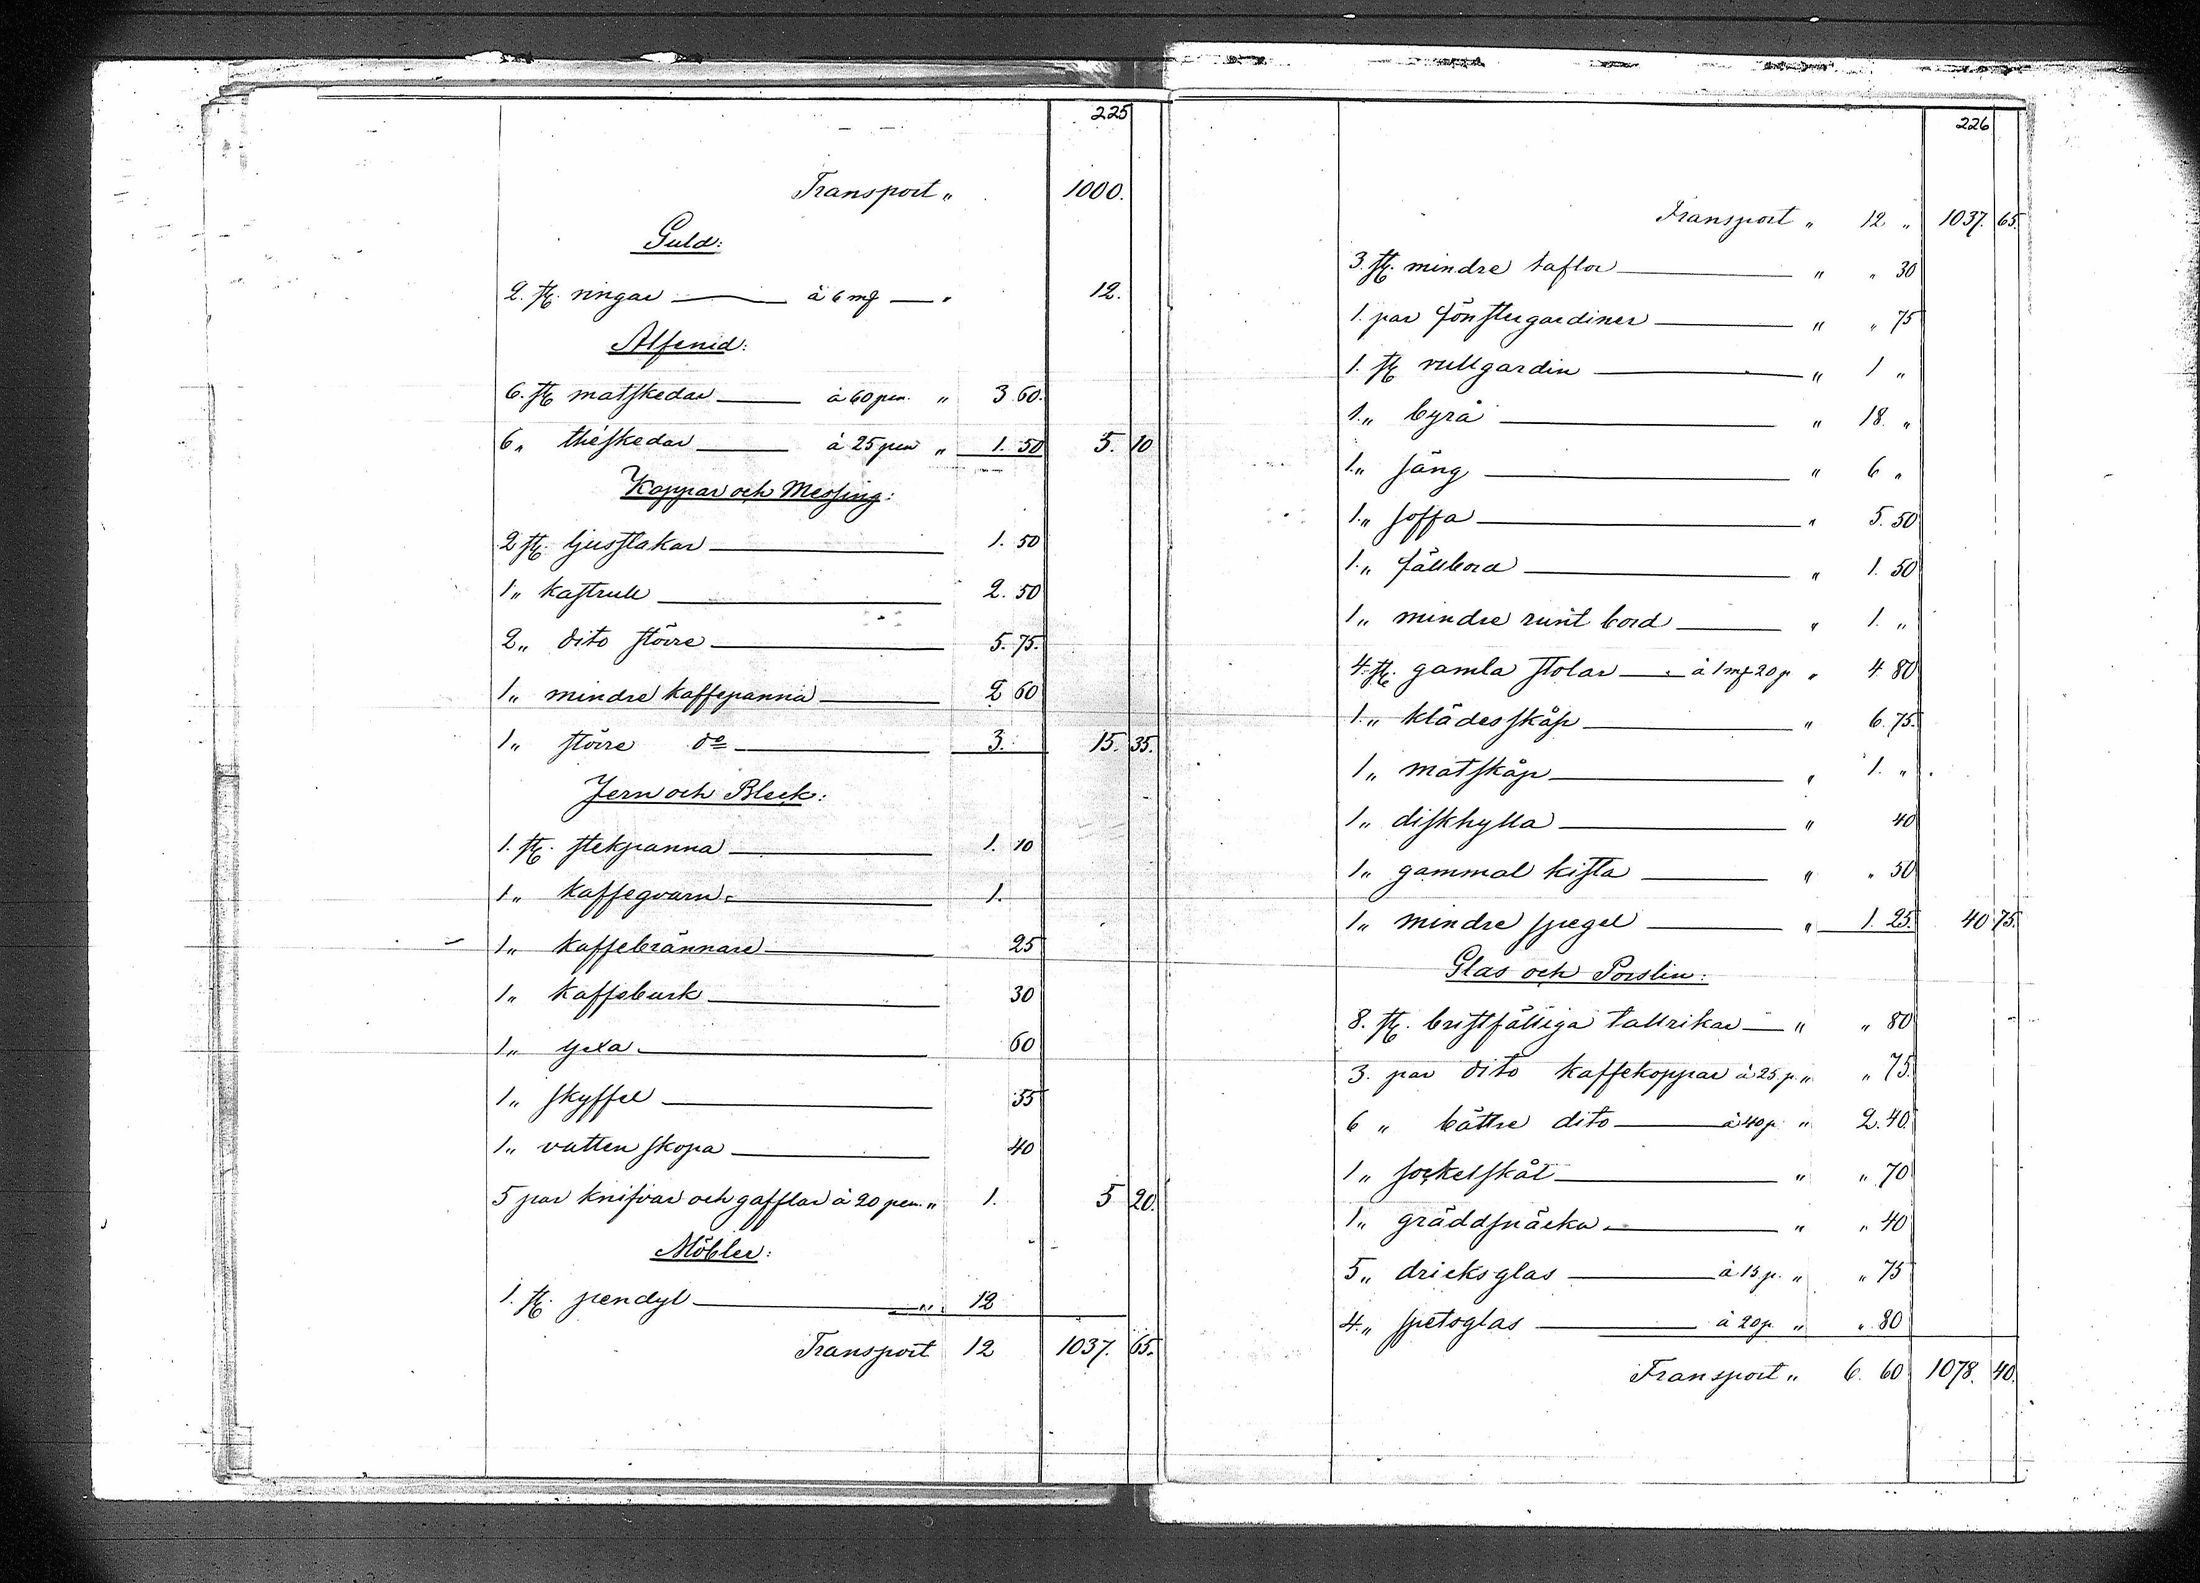 225
Transport „ 1000.
Guld:
2. st. ringar à 6 mf „ 12.
Alfenid:
6. st. matskedar à 60 pen. „ 3 60.
6 „ théskedar à 25 pen „ 1. 50 5. 10
Koppar och Messing:
2 st. ljusstakar 1. 50
1 „ kastrull 2. 50
2 „ dito större 5. 75.
1 „ mindre kaffepanna 2 60
1 „ större do 3. 15. 35.
Jern och Bleck:
1. st. stekpanna 1. 10
1 „ kaffeqvarn 1.
1 „ kaffebrännare 25
1 „ kaffeburk 30
1 „ yxa 60
1 „ skyffel 55
1 „ vatten skopa 40
5 par knifvar och gafflar à 20 pen. „ 1. 5 20.
Möbler:
1. st. pendyl „ 12
Transport 12 1037. 65.
226
Transport „ 12 „ 1037. 65.
3. st. mindre taflor „ „ 30
1. par fönstergardiner „ „ 75
1. st. rullgardin „ 1 „
1. „ byrå „ 18. „
1. „ säng „ 6 „
1. „ soffa „ 5. 50
1. „ fällbord „ 1. 50
1 „ mindre runt bord „ 1. „
4. st. gamla stolar à 1 mf 20 p „ 4 80
1. „ klädesskåp „ 6. 75.
1 „ matskåp „ 1. „
1 „ diskhylla „ 40
1 „ gammal kista „ „ 50
1 „ mindre spegel „ 1. 25. 40 75.
Glas och Porslin:
8. st. bristfälliga tallrikar „ „ 80
3. par dito kaffekoppar à 25 p. „ „ 75.
6 „ bättre dito à 40 p. „ 2. 40
1 „ sockerskål „ „ 70
1 „ gräddsnäcka „ „ 40
5 „ dricksglas à 15 p. „ „ 75
4. „ spetsglas à 20 p. „ „ 80
Transport „ 6. 60 1078. 40.